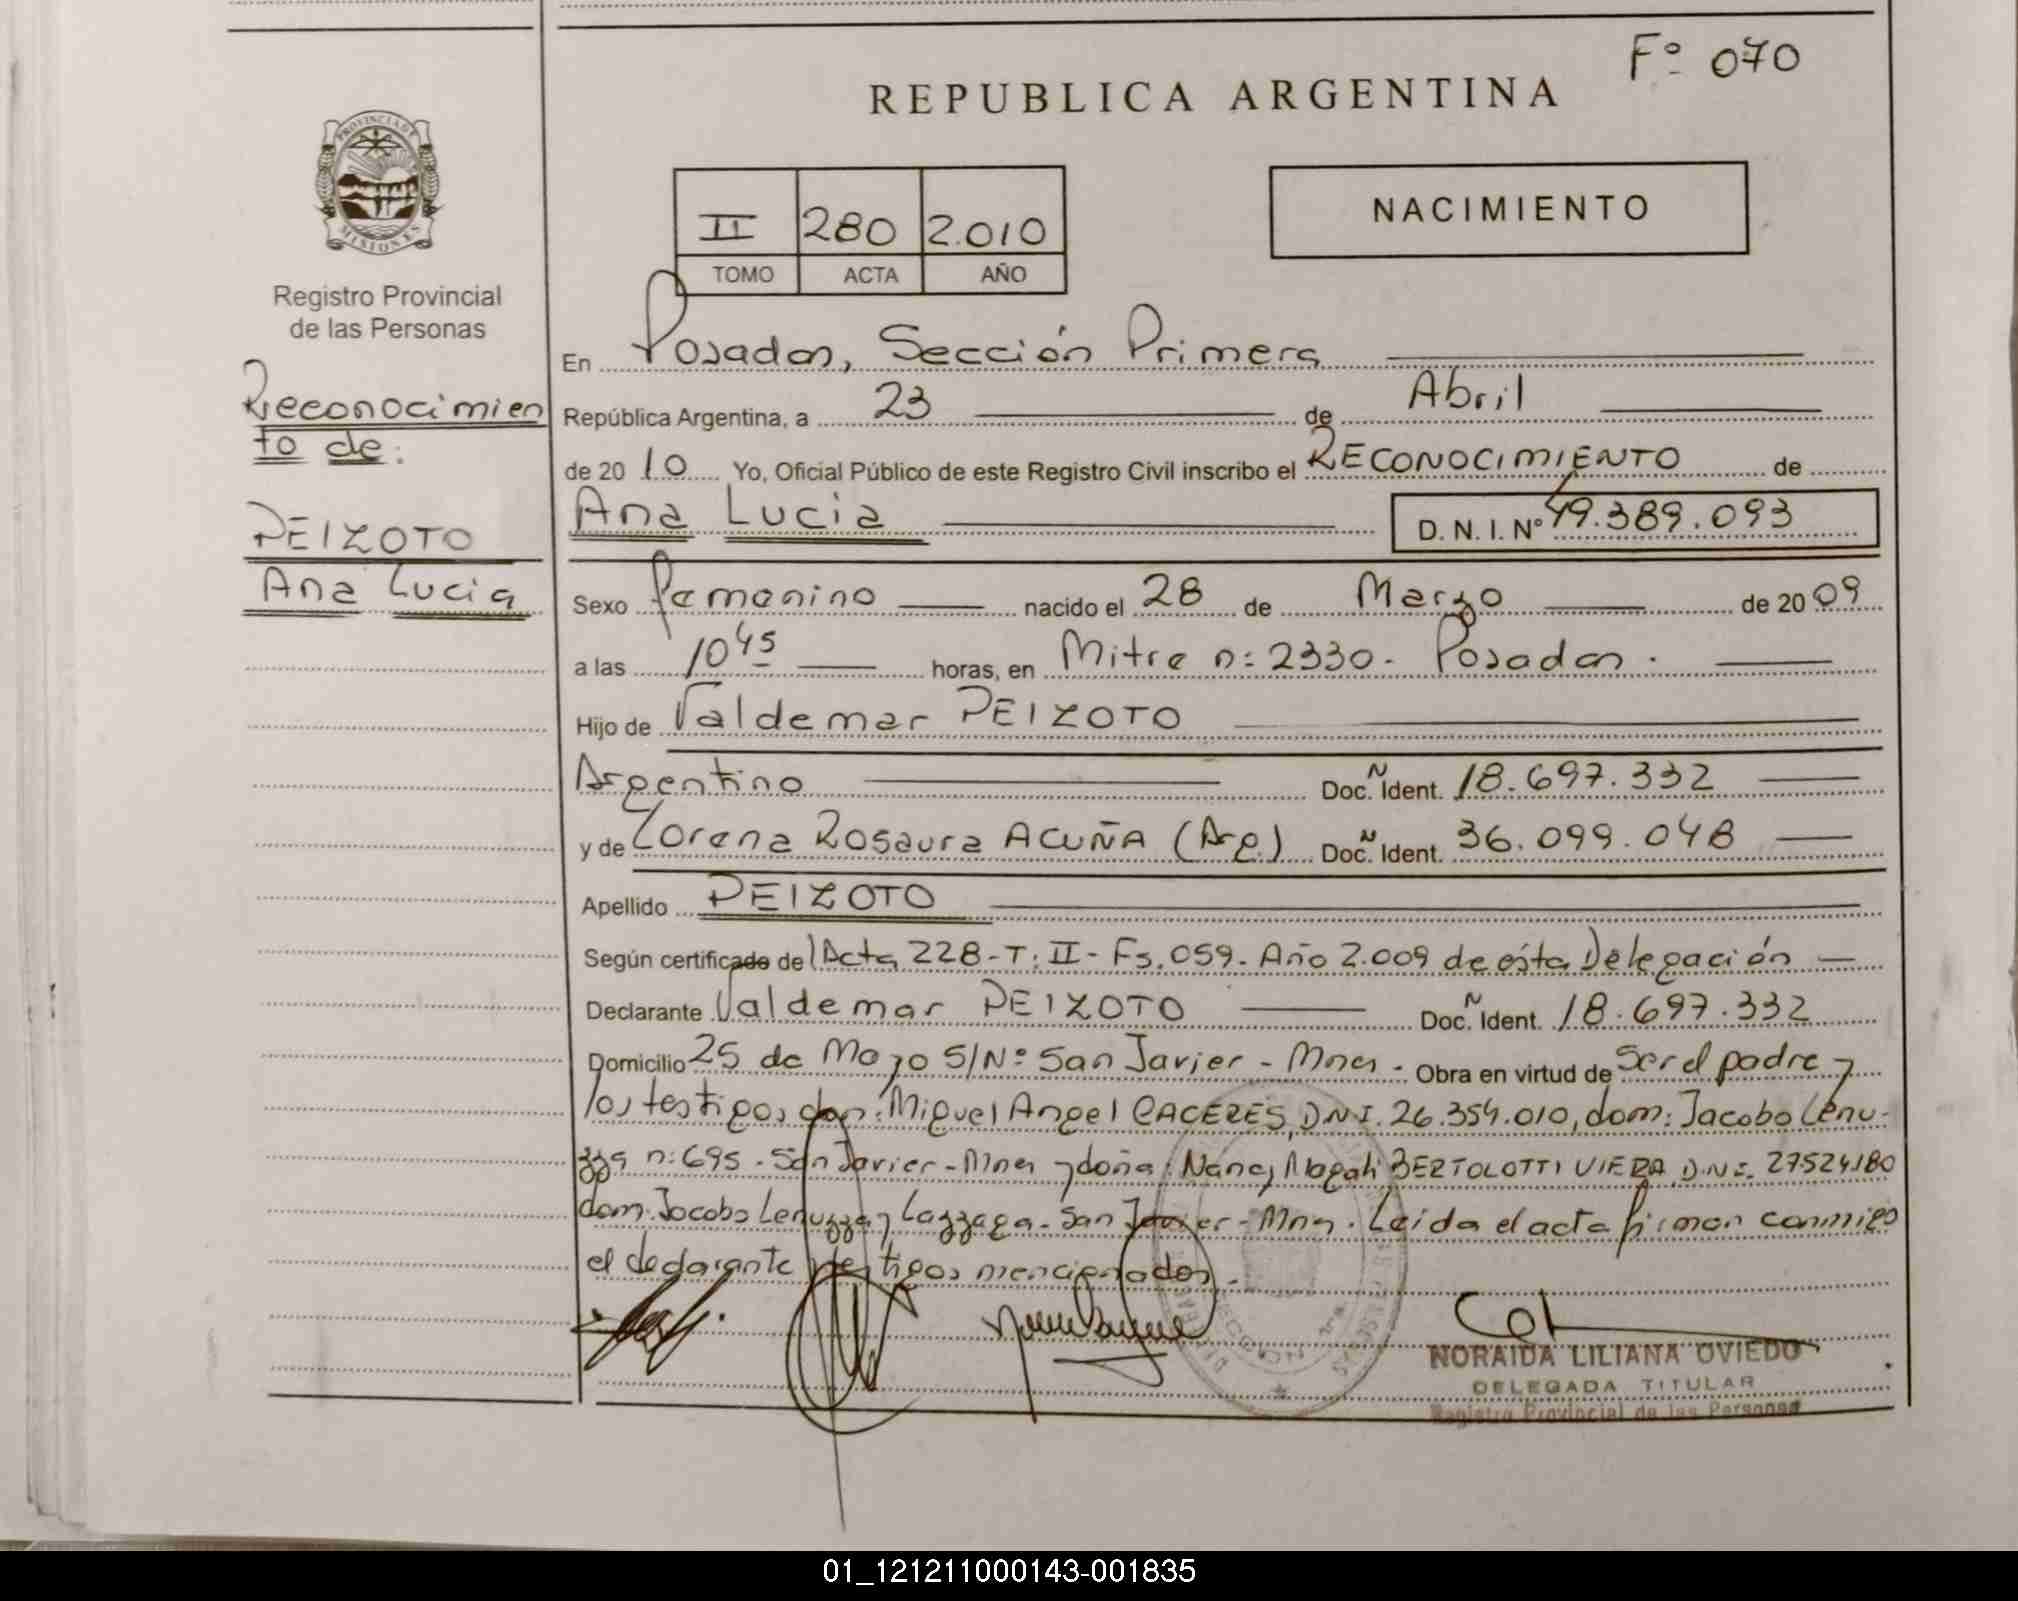 Fº 070
REPUBLICA ARGENTINA
PROVINCIA DE
MISIONES
Registro Provincial
de las Personas
II 280 2.010
TOMO ACTA AÑO
NACIMIENTO
Reconocimien
to de:
PEIZOTO
Ana Lucia
En Posadas, Sección Primera
República Argentina, a 23 de Abril
de 2010 Yo, Oficial Público de este Registro Civil inscribo el RECONOCIMIENTO de
Ana Lucia D. N. I. Nº 49.389.093
Sexo Femenino nacido el 28 de Marzo de 2009
a las 10 45 horas, en Mitre n: 2330. Posadas.
Hijo de Valdemar PEIZOTO
Argentino Doc. Ñ Ident. 18.697.332
y de Lorena Rosaura ACUÑA (Arg.) Doc. Ñ Ident. 36.099.048
Apellido PEIZOTO
Según certificado del Acta 228-T: II- Fs. 059. Año 2.009 de ésta Delegación
Declarante Valdemar PEIZOTO Doc. Ñ Ident. 18.697.332
Domicilio 25 de Mayo S/Nº San Javier - Mnes. Obra en virtud de Ser el padre y
los testigos don: Miguel Angel CACERES, D.N.I. 26.354.010, dom: Jacobo Lenu-
zza n: 695. San Javier - Mnes y doña: Nancy Magali BERTOLOTTI VIERA D.N.I. 27.524.180
dom. Jacobo Lenuzza y Lazzaga. San Javier - Mnes. Leída el acta firman conmigo
el declarante y testigos mencionados.
NORAIDA LILIANA OVIEDO
DELEGADA TITULAR
Registro Provincial de las Personas
01_121211000143-001835